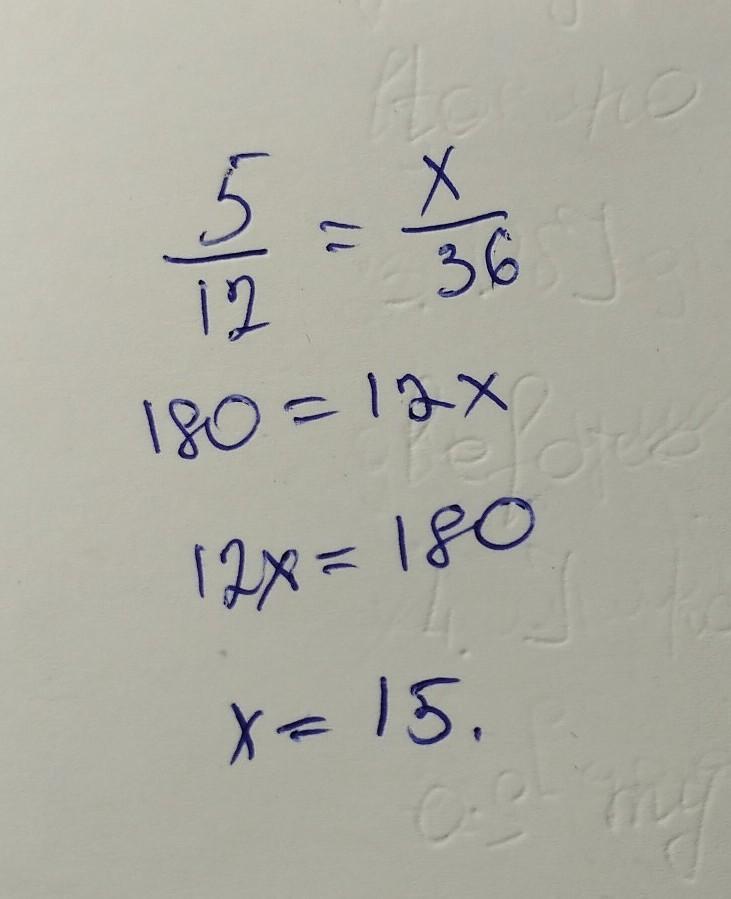 5/12 = x/36
180 = 12x
12x = 180
x = 15.